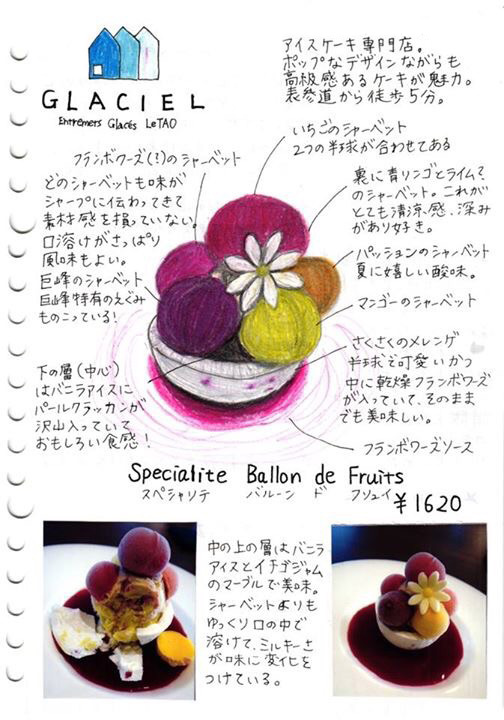 GLACIEL
Entremers Glacés LeTAO
アイスケーキ専門店。
ポップなデザインながらも
高級感あるケーキが魅力。
表参道から徒歩5分。
いちごのシャーベット
2つの半球が合わせてある
フランボワーズ(?)のシャーベット
どのシャーベットも味が
シャープに伝わってきて
素材感を損っていない。
口溶けがさっぱり
風味もよい。
巨峰のシャーベット
巨峰特有のえぐみ
ものこっている!
裏に青リンゴとライム?
のシャーベット。これが
とても清涼感、深み
があり好き。
パッションのシャーベット
夏に嬉しい酸味。
マンゴーのシャーベット
さくさくのメレンゲ
半球で可愛いかつ
中に乾燥フランボワーズ
が入っていて、そのまま
でも美味しい。
下の層(中心)
はバニラアイスに
パールクラッカンが
沢山入っていて
おもしろい食感!
フランボワーズソース
Specialite Ballon de Fruits
スペシャリテ バルーン ド フリュイ
¥1620
中の上の層はバニラ
アイスとイチゴジャム
のマーブルで美味。
シャーベットよりも
ゆっくり口の中で
溶けて、ミルキーさ
が味に変化を
つけている。